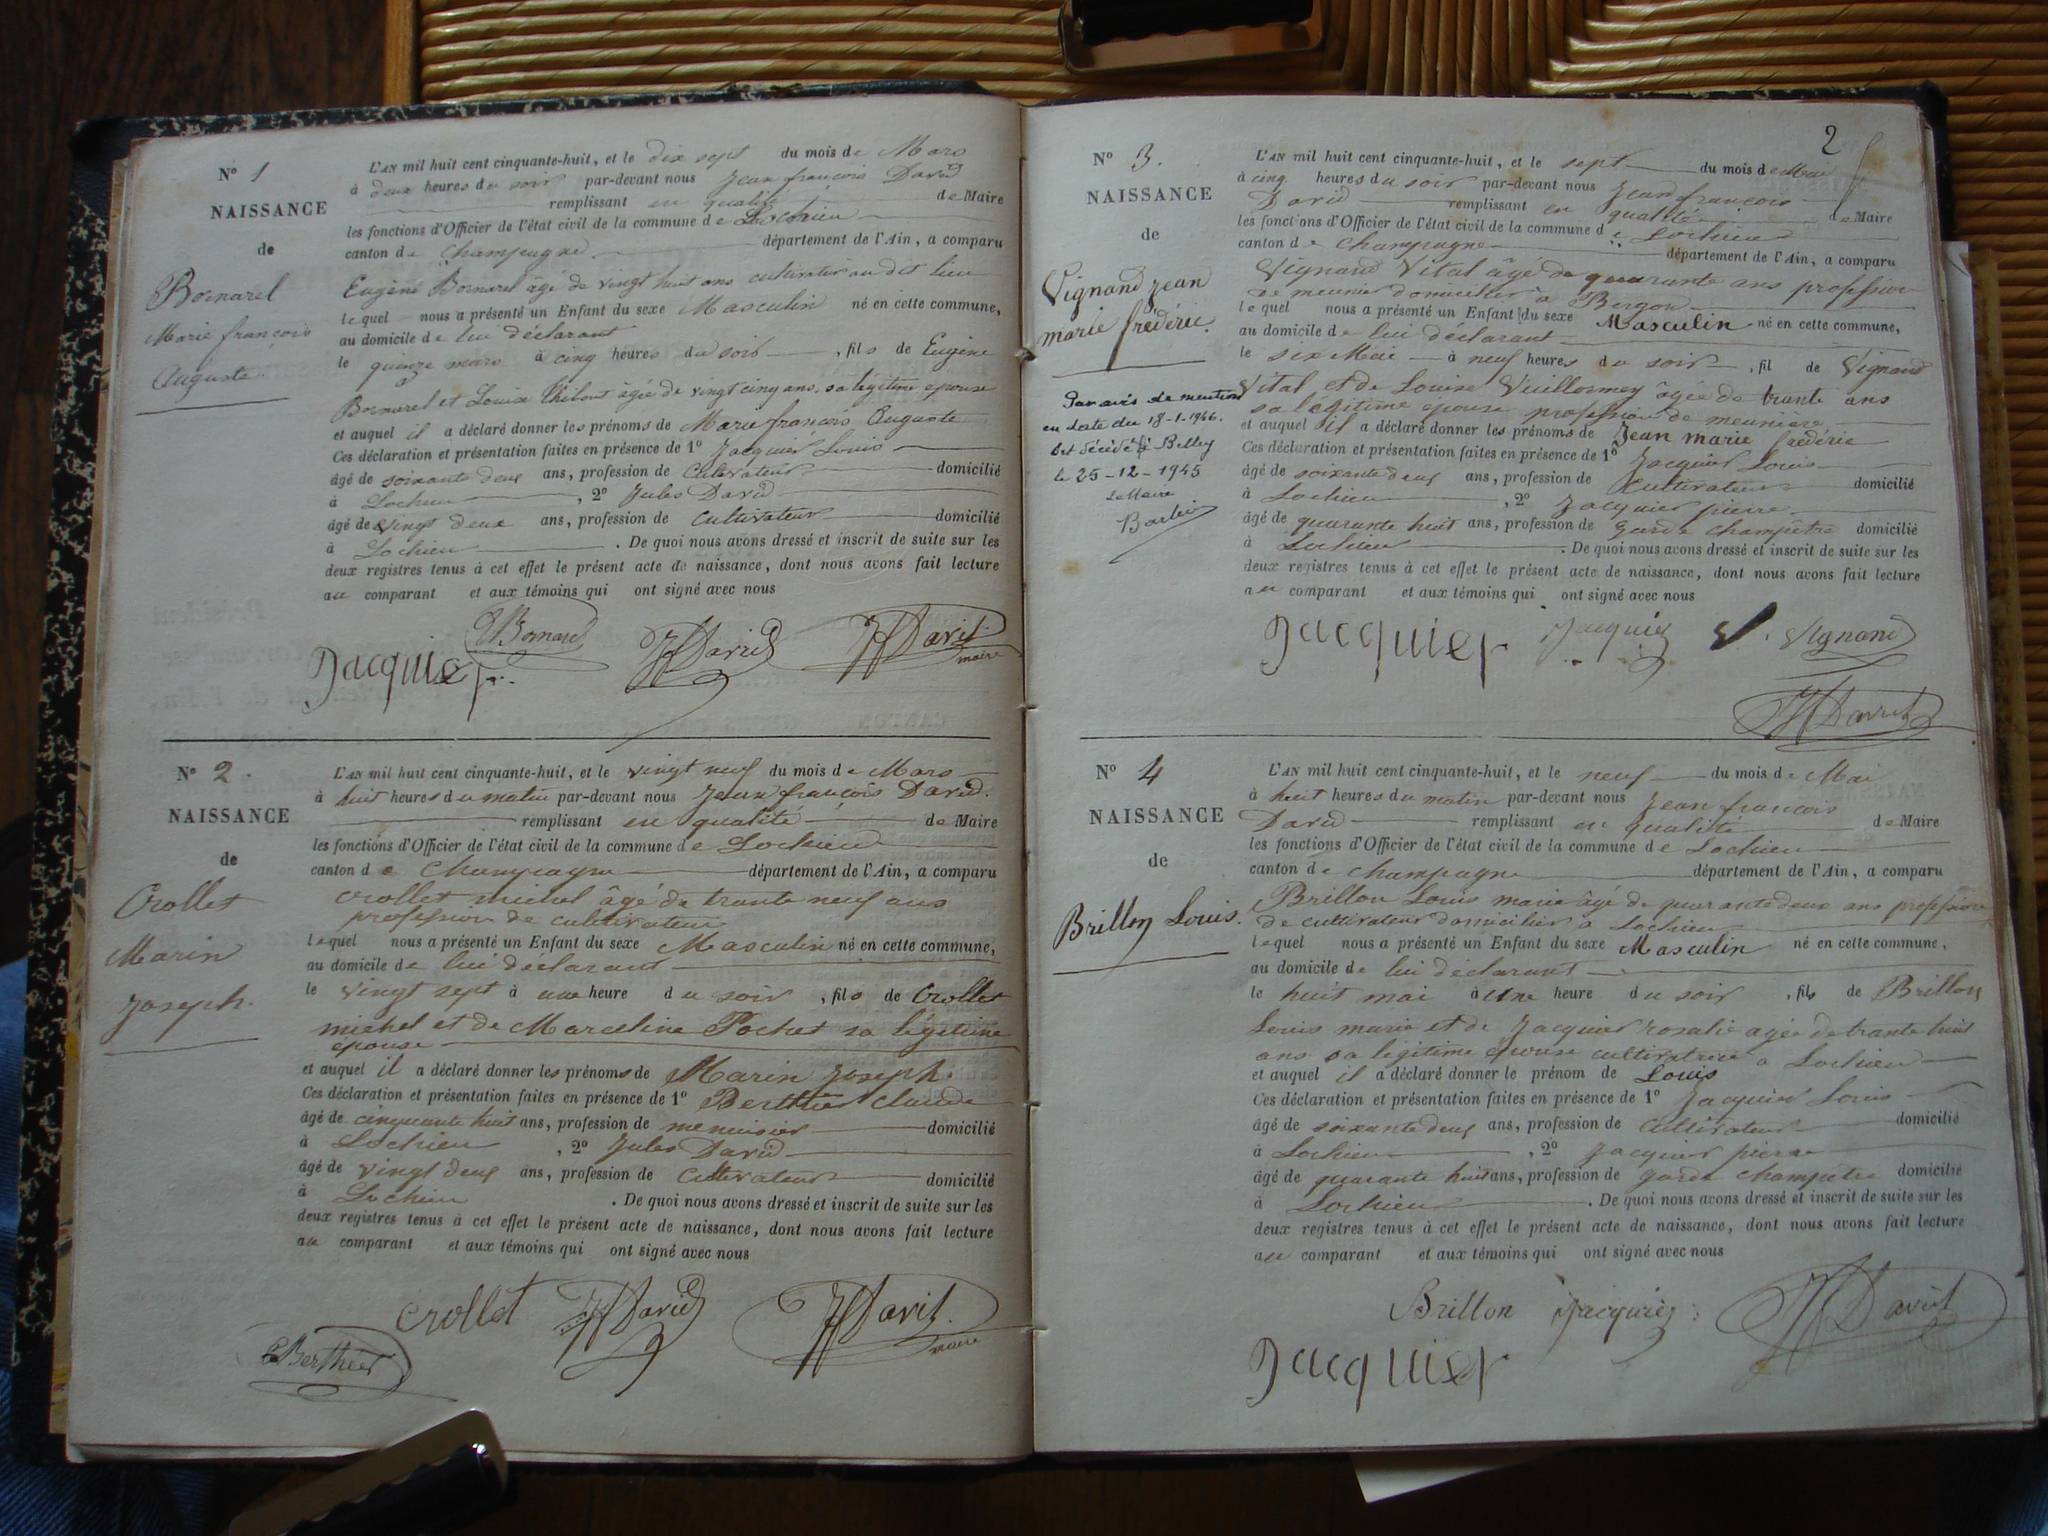 N° 1
NAISSANCE
de
Bornarel
Marie françois
Auguste
L'AN mil huit cent cinquante-huit, et le dix sept du mois de Mars
à deux heures du soir par-devant nous Jean françois David
remplissant en qualité de Maire
les fonctions d'Officier de l'état civil de la commune de Lochieu
canton de Champagne département de l'Ain, a comparu
Eugène Bornarel âgé de vingt huit ans cultivateur au dit lieu
lequel nous a présenté un Enfant du sexe Masculin né en cette commune,
au domicile de lui déclarant
le quinze mars à cinq heures du soir, fils de Eugène
Bornarel et Louise âgée de vingt cinq ans, sa légitime épouse
et auquel il a déclaré donner les prénoms de Marie françois Auguste
Ces déclaration et présentation faites en présence de 1° Jacquier Louis
âgé de soixante deux ans, profession de Cultivateur domicilié
à Lochieu, 2° Jules David
âgé de vingt deux ans, profession de cultivateur domicilié
à Lochieu. De quoi nous avons dressé et inscrit de suite sur les
deux registres tenus à cet effet le présent acte de naissance, dont nous avons fait lecture
au comparant et aux témoins qui ont signé avec nous
EBornarel
Jacquier JDavid JFDavid
maire
N° 2.
NAISSANCE
de
Crollet
Marin
Joseph.
L'AN mil huit cent cinquante-huit, et le vingt neuf du mois de Mars
à huit heures du matin par-devant nous Jean françois David.
remplissant en qualité de Maire
les fonctions d'Officier de l'état civil de la commune de Lochieu
canton de Champagne département de l'Ain, a comparu
Crollet michel âgé de trante neuf ans
profession de cultivateur
lequel nous a présenté un Enfant du sexe Masculin né en cette commune,
au domicile de lui déclarant
le vingt sept à une heure du soir, fils de Crollet
michel et de Marceline Pochet sa légitime
épouse
et auquel il a déclaré donner les prénoms de Marin Joseph
Ces déclaration et présentation faites en présence de 1° Berthier claude
âgé de cinquante huit ans, profession de menuisier domicilié
à Lochieu, 2° Jules David
âgé de vingt deux ans, profession de Cultivateur domicilié
à Lochieu. De quoi nous avons dressé et inscrit de suite sur les
deux registres tenus à cet effet le présent acte de naissance, dont nous avons fait lecture
au comparant et aux témoins qui ont signé avec nous
crollet JDavid JFDavid
maire
CBerthier
2
N° 3.
NAISSANCE
de
Vignand jean
marie frédéric.
Par avis de mention
en date du 18-1-1946.
Est décédé à Belley
le 25-12-1945
Le Maire
L'AN mil huit cent cinquante-huit, et le sept du mois de Mai
à cinq heures du soir par-devant nous Jean françois
David remplissant en qualité de Maire
les fonctions d'Officier de l'état civil de la commune de Lochieu
canton de Champagne département de l'Ain, a comparu
Vignand Vital âgé de quarante ans profession
de meunier domicilier à
lequel nous a présenté un Enfant du sexe Masculin né en cette commune,
au domicile de lui déclarant
le six Mai à neuf heures du soir, fil de Vignand
Vital et de Louise Vuillermey âgée de trante ans
sa légitime épouse profession de meunière
et auquel il a déclaré donner les prénoms de Jean marie frédéric
Ces déclaration et présentation faites en présence de 1° Jacquier Louis
âgé de soixante deux ans, profession de Cultivateur domicilié
à Lochieu, 2° Jacquier pierre
âgé de quarante huit ans, profession de garde champêtre domicilié
à Lochieu. De quoi nous avons dressé et inscrit de suite sur les
deux registres tenus à cet effet le présent acte de naissance, dont nous avons fait lecture
au comparant et aux témoins qui ont signé avec nous
Jacquier Jacquier V. Vignand
JFDavid
N° 4
NAISSANCE
de
Brillon Louis.
L'AN mil huit cent cinquante-huit, et le neuf du mois de Mai
à huit heures du matin par-devant nous Jean françois
David remplissant en qualité de Maire
les fonctions d'Officier de l'état civil de la commune de Lochieu
canton de champagne département de l'Ain, a comparu
Brillon Louis marie âgé de quarante deux ans profession
de cultivateur domicilier à Lochieu
lequel nous a présenté un Enfant du sexe Masculin né en cette commune,
au domicile de lui déclarant
le huit mai à une heure du soir, fils de Brillon
Louis marie et de Jacquier rosalie agée de trante huit
ans sa légitime épouse cultivatrice à Lochieu
et auquel il a déclaré donner le prénom de Louis
Ces déclaration et présentation faites en présence de 1° Jacquier Louis
âgé de soixante deux ans, profession de Cultivateur domicilié
à Lochieu, 2° Jacquier pierre
âgé de quarante huit ans, profession de garde champêtre domicilié
à Lochieu. De quoi nous avons dressé et inscrit de suite sur les
deux registres tenus à cet effet le présent acte de naissance, dont nous avons fait lecture
au comparant et aux témoins qui ont signé avec nous
Brillon Jacquier JFDavid
Jacquier